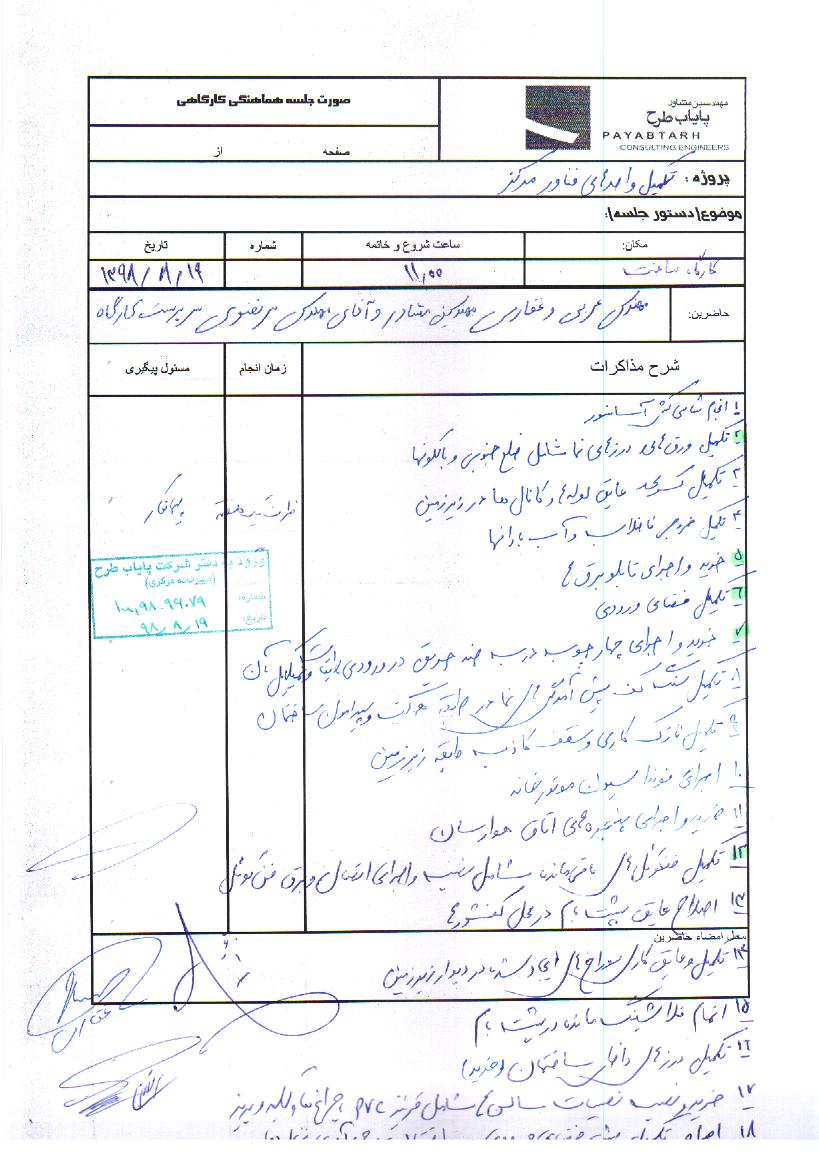 صورت جلسه هماهنگی کارگاهی
مهندسین مشاور
پایاب طرح
PAYABTARH
CONSULTING ENGINEERS
صفحه از
پروژه: تکمیل واحدهای فناور مرکز
موضوع/دستور جلسه:
مکان: ساعت شروع و خاتمه شماره تاریخ
کارگاه ساخت ۱۱,۰۰ ۱۳۹۸/۸/۱۹
حاضرین: مهندس عربی و غفاری مهندسین مشاور و آقای مهندس مرتضوی سرپرست کارگاه
شرح مذاکرات زمان انجام مسئول پیگیری
۱ انجام شاسی کشی آسانسور
۲ تکمیل ورق‌های درزهای نما شامل ضلع جنوبی و بالکونها
۳ تکمیل عایق لوله‌ها و کانال ها در زیرزمین
۴ تکمیل خروجی فاضلاب و آب بارانها
ظرف هفته پیمانکار
۵ خرید و اجرای تابلو برق ها
۶ تکمیل فضای ورودی
ورود به دفتر شرکت پایاب طرح
(دبیرخانه مرکزی)
شماره: ۱۰۰,۹۸-۹۶۰۷۹
تاریخ: ۹۸/۸/۱۹
۷ خرید و اجرای چهارچوب درب ضد حریق در ورودی آن
۸ تکمیل سنگ کف پیش آمدگی های نما در طبقه همکف و پیرامون ساختمان
۹ تکمیل نازک کاری و سقف کاذب طبقه زیرزمین
۱۰ اجرای فونداسیون موتورخانه
۱۱ خرید و اجرای پنجره‌های اتاق هوارسان
۱۲ تکمیل فنکوئل‌های باقی‌مانده شامل نصب و اجرای اتصال و برق فن کوئل
۱۳ اصلاح عایق پشت بام در محل کفشورها
محل امضاء حاضرین
۱۴ تکمیل و عایق کاری سوراخ های ایجاد شده در دیوار زیرزمین
۱۵ اتمام فلاشینگ مانده در پشت بام
۱۶ تکمیل درزهای داخل ساختمان (خرید)
۱۷ خرید و نصب نصبیات سالن ها شامل قرنیز pvc، چراغها و کلید و پریز
۱۸